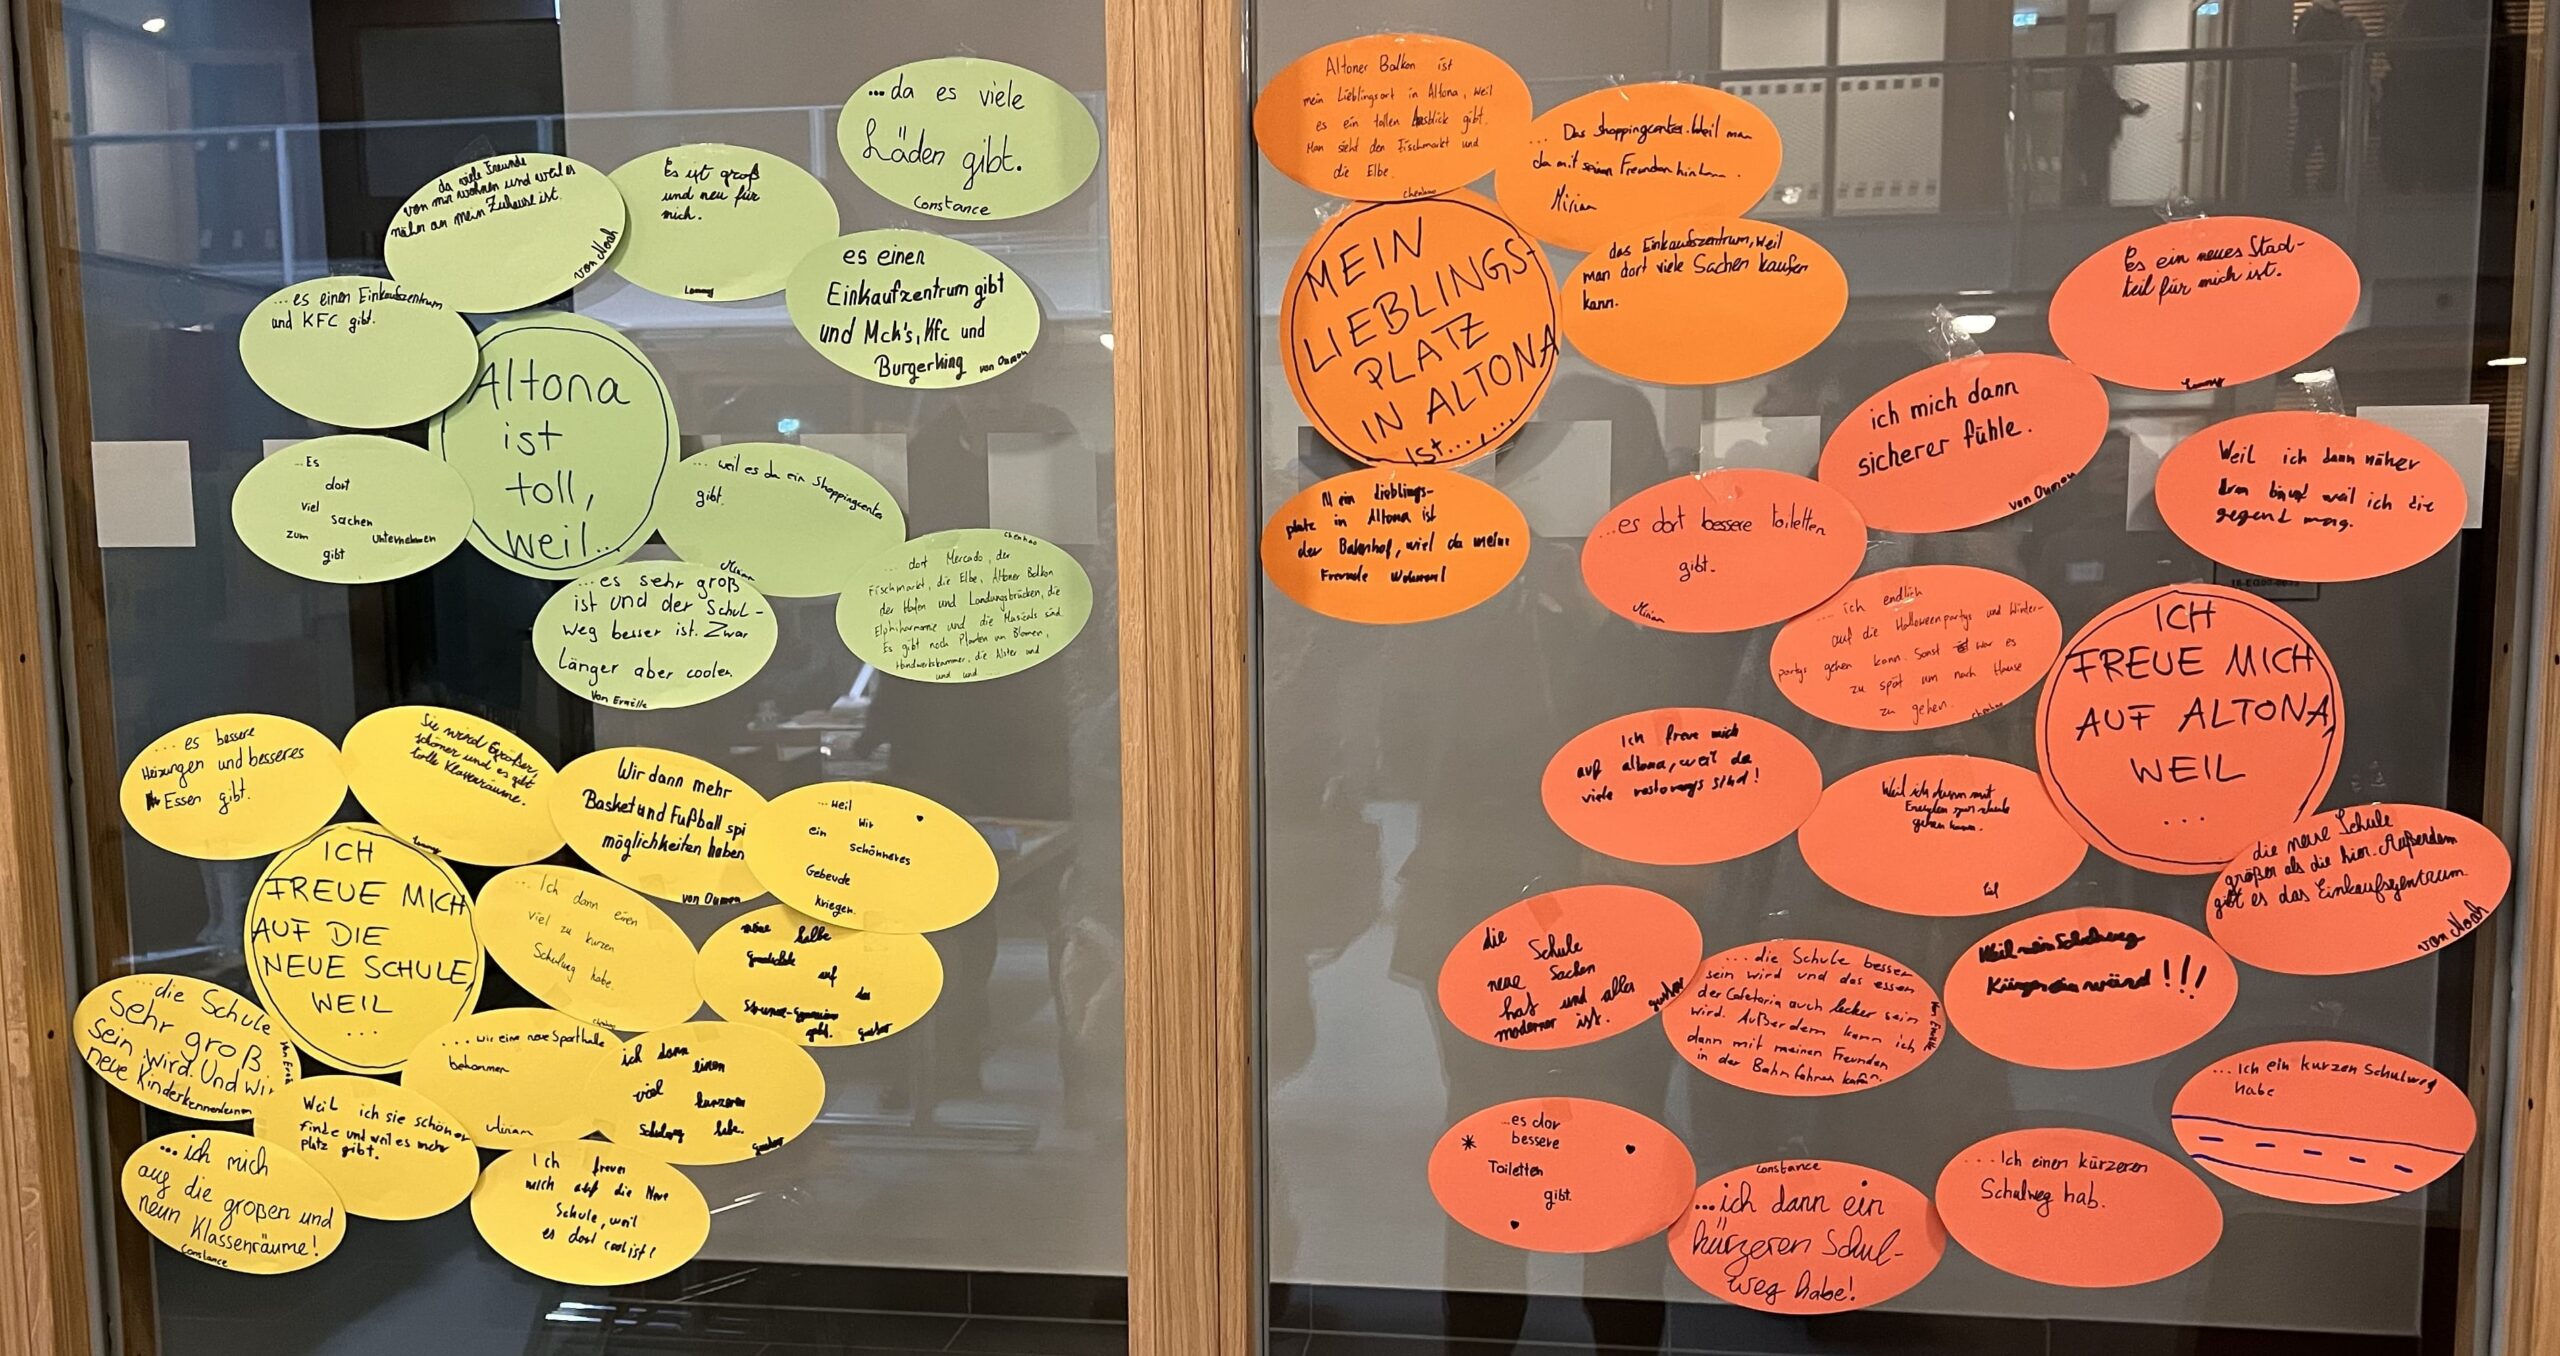 Altona
ist
toll,
weil...
...da es viele
Läden gibt.
Constance
da viele Freunde
von mir wohnen und weil es
näher an mein Zuhause ist.
von Noah
Es ist groß
und neu für
mich.
es einen
Einkaufzentrum gibt
und Mck's, Kfc und
Burgerking von Oumou
...es einen Einkaufszentrum
und KFC gibt.
...Es
dort
viel
sachen
zum Unternehmen
gibt
... weil es da ein Shoppingcenter
gibt.
Miriam
...es sehr groß
ist und der Schul-
weg besser ist. Zwar
Länger aber cooler.
chenhao
... dort Mercado, der
Fischmarkt, die Elbe, Altoner Balkon
der Hafen und Landungsbrücken, die
Elphiharmonie und die Musicals sind.
Es gibt noch Planten un Blomen,
Handwerkskammer, die Alster und
und und...
ICH
FREUE MICH
AUF DIE
NEUE SCHULE,
WEIL
...
... es bessere
Heizungen und besseres
Essen gibt.
Sie wird Größer,
schöner und es gibt
tolle Klassenräume.
Wir dann mehr
Basket und Fußball spi
möglichkeiten haben
von Oumou
...weil
wir
ein
schönneres
Gebeude
kriegen.
...Ich dann einen
viel zu kurzen
Schulweg habe.
chenhao
halbe
auf
das
gibt.
...die Schule
Sehr groß
sein wird. Und wir
neue Kinderkennenlernen
... wir eine neue Sporthalle
bekommen
Miriam
ich dann
einen
viel
kürzeren
Schulweg habe.
Weil ich sie schöner
finde und weil es mehr
platz gibt.
...ich mich
auf die großen und
neun Klassenräume!
Constance
Ich freuen
mich auf die Neue
Schule, weil
es dort cool ist!
MEIN
LIEBLINGS-
PLATZ
IN ALTONA
IST...,...
Altoner Balkon ist
mein Lieblingsort in Altona, weil
es ein tollen Ausblick gibt.
Man sieht den Fischmarkt und
die Elbe.
chenhao
... Das Shoppingcenter. Weil man
da mit seinen Freunden hin kann.
Miriam
das Einkaufszentrum, weil
man dort viele Sachen kaufen
kann.
Mein Lieblings-
platz in Altona ist
der Bahnhof, wiel da meine
Freunde Wohnen!
ICH
FREUE MICH
AUF ALTONA,
WEIL
...
Es ein neues Stad-
teil für mich ist.
ich mich dann
sicherer fühle.
von Oumou
Weil ich dann näher
dran bin und weil ich die
gegend mag.
...es dort bessere toiletten
gibt.
Miriam
... ich endlich
auf die Halloweenpartys und Winter-
partys gehen kann. Sonst war es
zu spät um nach Hause
zu gehen.
chenhao
Ich freue mich
auf altona, weil da
viele restorangs sind!
Weil ich dann mit
zur schule
gehen kann.
die neue Schule
größer als die hier. Außerdem
gibt es das Einkaufszentrum.
von Noah
die
Schule
neue Sachen
hat und alles
moderner ist.
...die Schule besser
sein wird und das essen
der Cafetaria auch lecker sein
wird. Außerdem kann ich
dann mit meinen Freunden
in der Bahn fahren kann.
Weil mein Schulweg
Kürzer sein wärd!!!
...Ich ein kurzen Schulweg
habe
...es dor
bessere
Toiletten
gibt.
Constance
...ich dann ein
kürzeren Schul-
weg habe!
...Ich einen kürzeren
Schulweg hab.